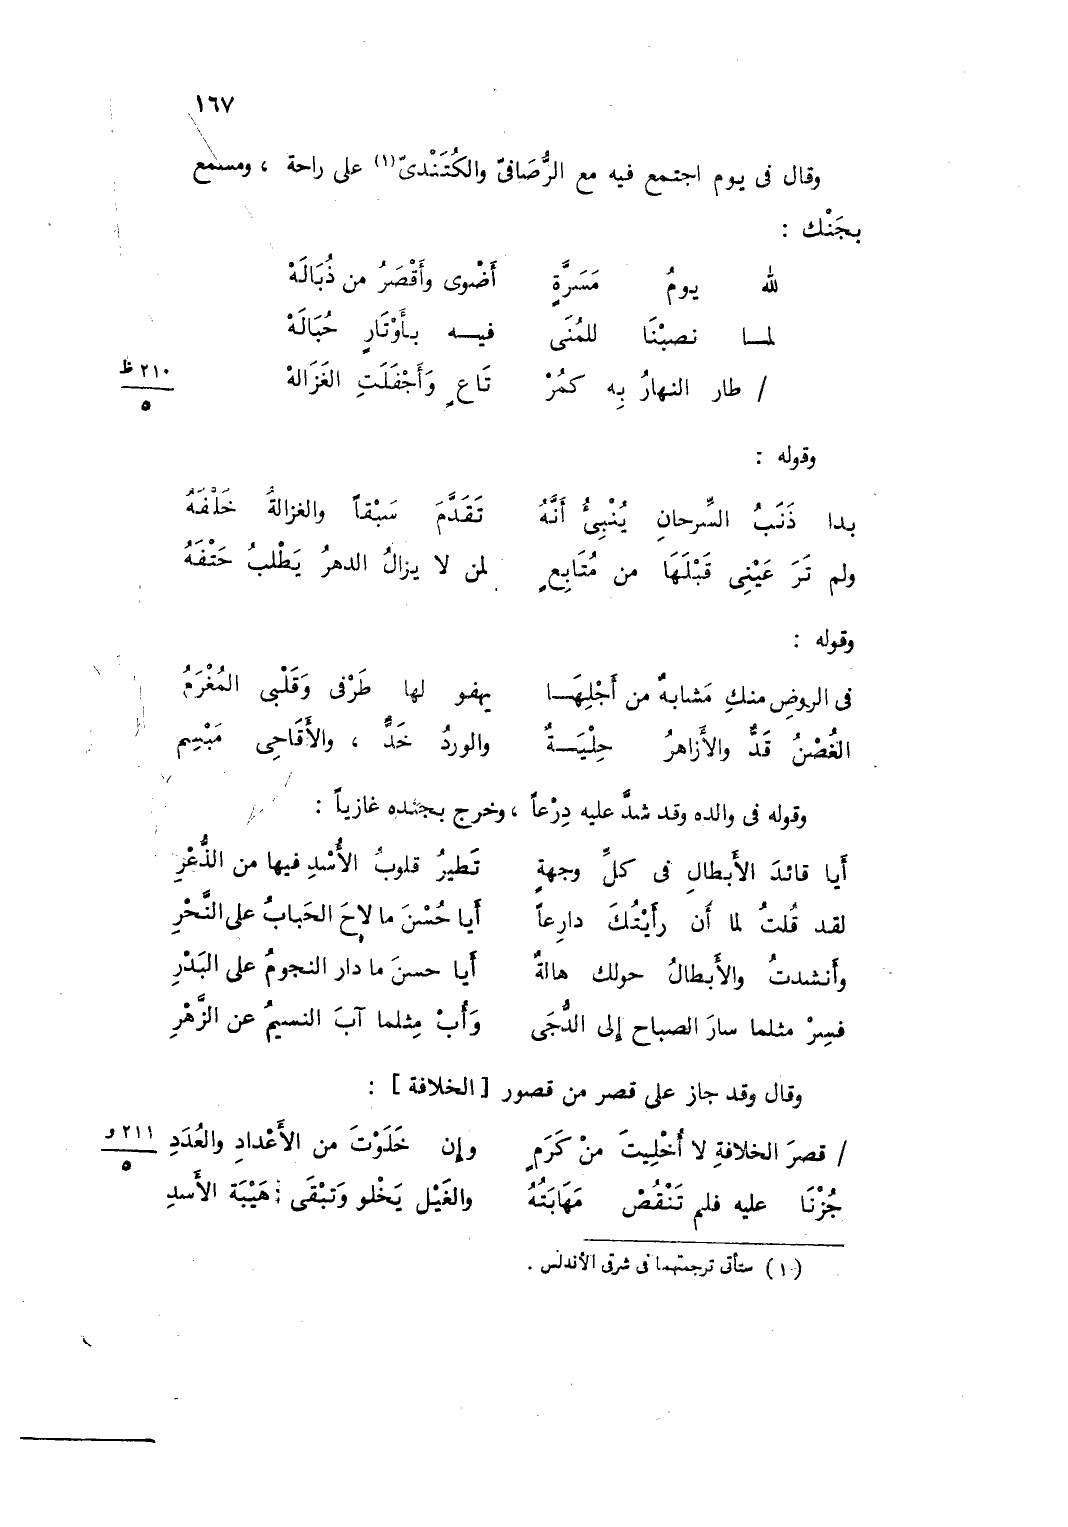 ١٦٧
وقال فى يوم اجتمع فيه مع الرُّصَافىّ والكُتَنْدىّ (١) على راحة ، ومستمع
بجَنْك :
لله يومُ مَسَرَّةٍ أَضْوى وأَقْصَرُ من ذُبَالَهْ
لمـا نصبْنَا للمُنَى فيـه بأَوْتَارٍ حُبَالَهْ
/ طار النهارُ بِه كمُرْ تَاعٍ وَأَجْفَلَتِ الغَزَالهْ
٢١٠ ظ
٥
وقوله :
بدا ذَنَبُ السِّرحانِ يُنْبِئُ أَنَّهُ تَقَدَّمَ سَبْقاً والغزالةُ خَلْفَهُ
ولم تَرَ عَيْنِى قَبْلَهَا من مُتَابِعٍ لمن لا يزالُ الدهرُ يَطْلبُ حَتْفَهُ
وقوله :
فى الروضِ منكِ مَشابهٌ من أَجْلِهَـا يهفو لها طَرْفى وَقَلْبى المُغْرَمُ
الغُصْنُ قَدٌّ والأَزاهرُ حِلْيَـةٌ والوردُ خَدٌّ ، والأَقَاحِى مَبْسِم
وقوله فى والده وقد شدَّ عليه دِرْعاً ، وخرج بجنده غازياً :
أَيا قائدَ الأَبطالِ فى كلِّ وجهةٍ تَطيرُ قلوبُ الأُسْدِ فيها من الذُّعْرِ
لقد قُلتُ لما أَن رأَيْتُكَ دارِعاً أَيا حُسْنَ ما لاحَ الحَبابُ على النَّحْرِ
وأَنشدتُ والأَبطالُ حولك هالةٌ أَيا حسنَ ما دار النجومُ على البَدْرِ
فسِرْ مثلما سارَ الصباح إلى الدُّجَى وَأُبْ مِثلما آبَ النسيمُ عن الزَّهْرِ
وقال وقد جاز على قصر من قصور [ الخلافة ] :
/ قصرَ الخلافةِ لا أُخْلِيتَ منْ كَرَمٍ وإن خَلَوْتَ من الأَعْدادِ والعُدَدِ
٢١١ و
٥
جُزْنَا عليه فلم تَنْقُصْ مَهَابَتُهُ والغَيْل يَخْلو وَتبْقَى هَيْبَة الأَسدِ
(١) ستأتى ترجمتهما فى شرقى الأندلس .